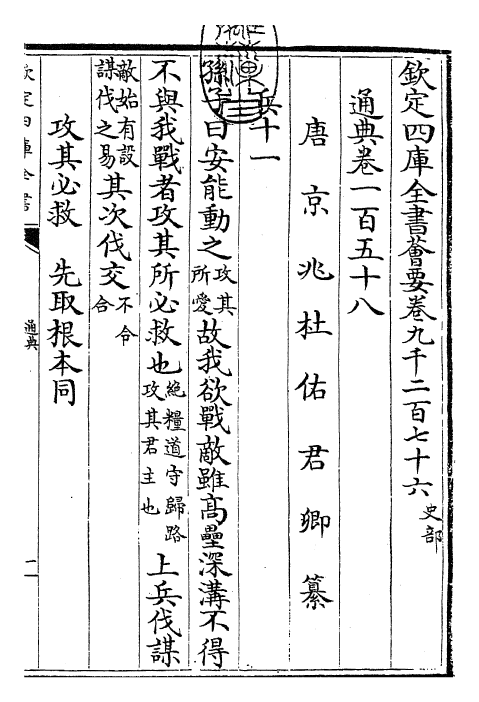 欽定四庫全書薈要卷九千二百七十六 史部
通典卷一百五十八
唐京兆杜佑君卿纂
兵十一
孫子曰安能動之攻其所愛故我欲戰敵雖髙壘深溝不得
不與我戰者攻其所必救也絶糧道守歸路攻其君主也上兵伐謀
敵始有設謀伐之易其次伐交不令合
攻其必救 先取根本同
欽定四庫全書
通典